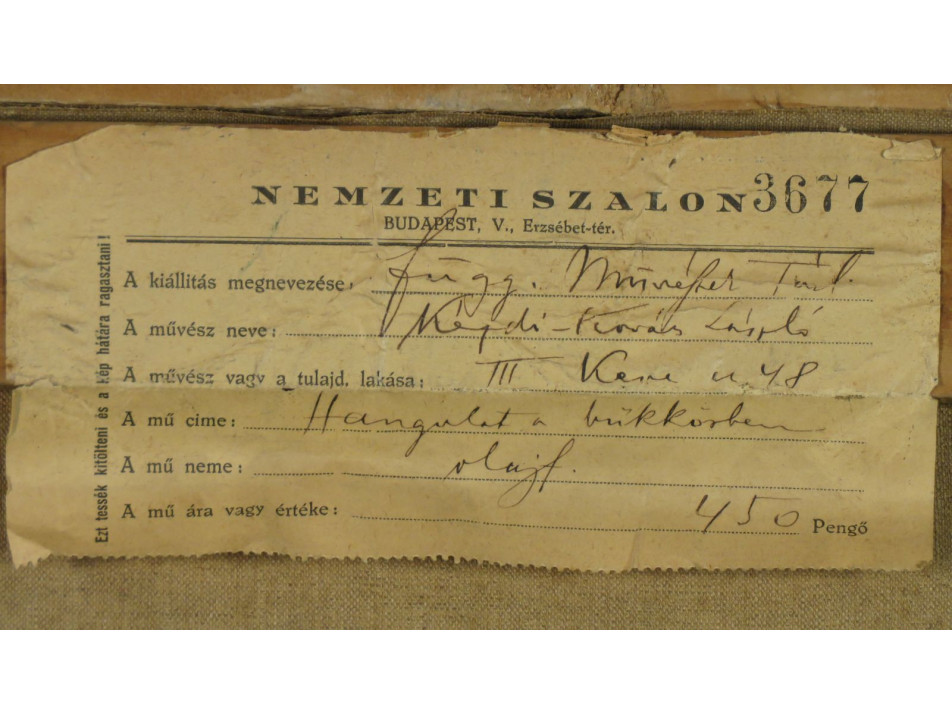 NEMZETI SZALON 3677
BUDAPEST, V., Erzsébet-tér.
A kiállitás megnevezése: függ. Művészek Társ.
A művész neve: Kézdi-Kovács László
A művész vagy a tulajd. lakása: III u 48
A mű cime: Hangulat a bükkösben
A mű neme: olajf.
A mű ára vagy értéke: 450 Pengő
Ezt tessék kitölteni és a kép hátára ragasztani!